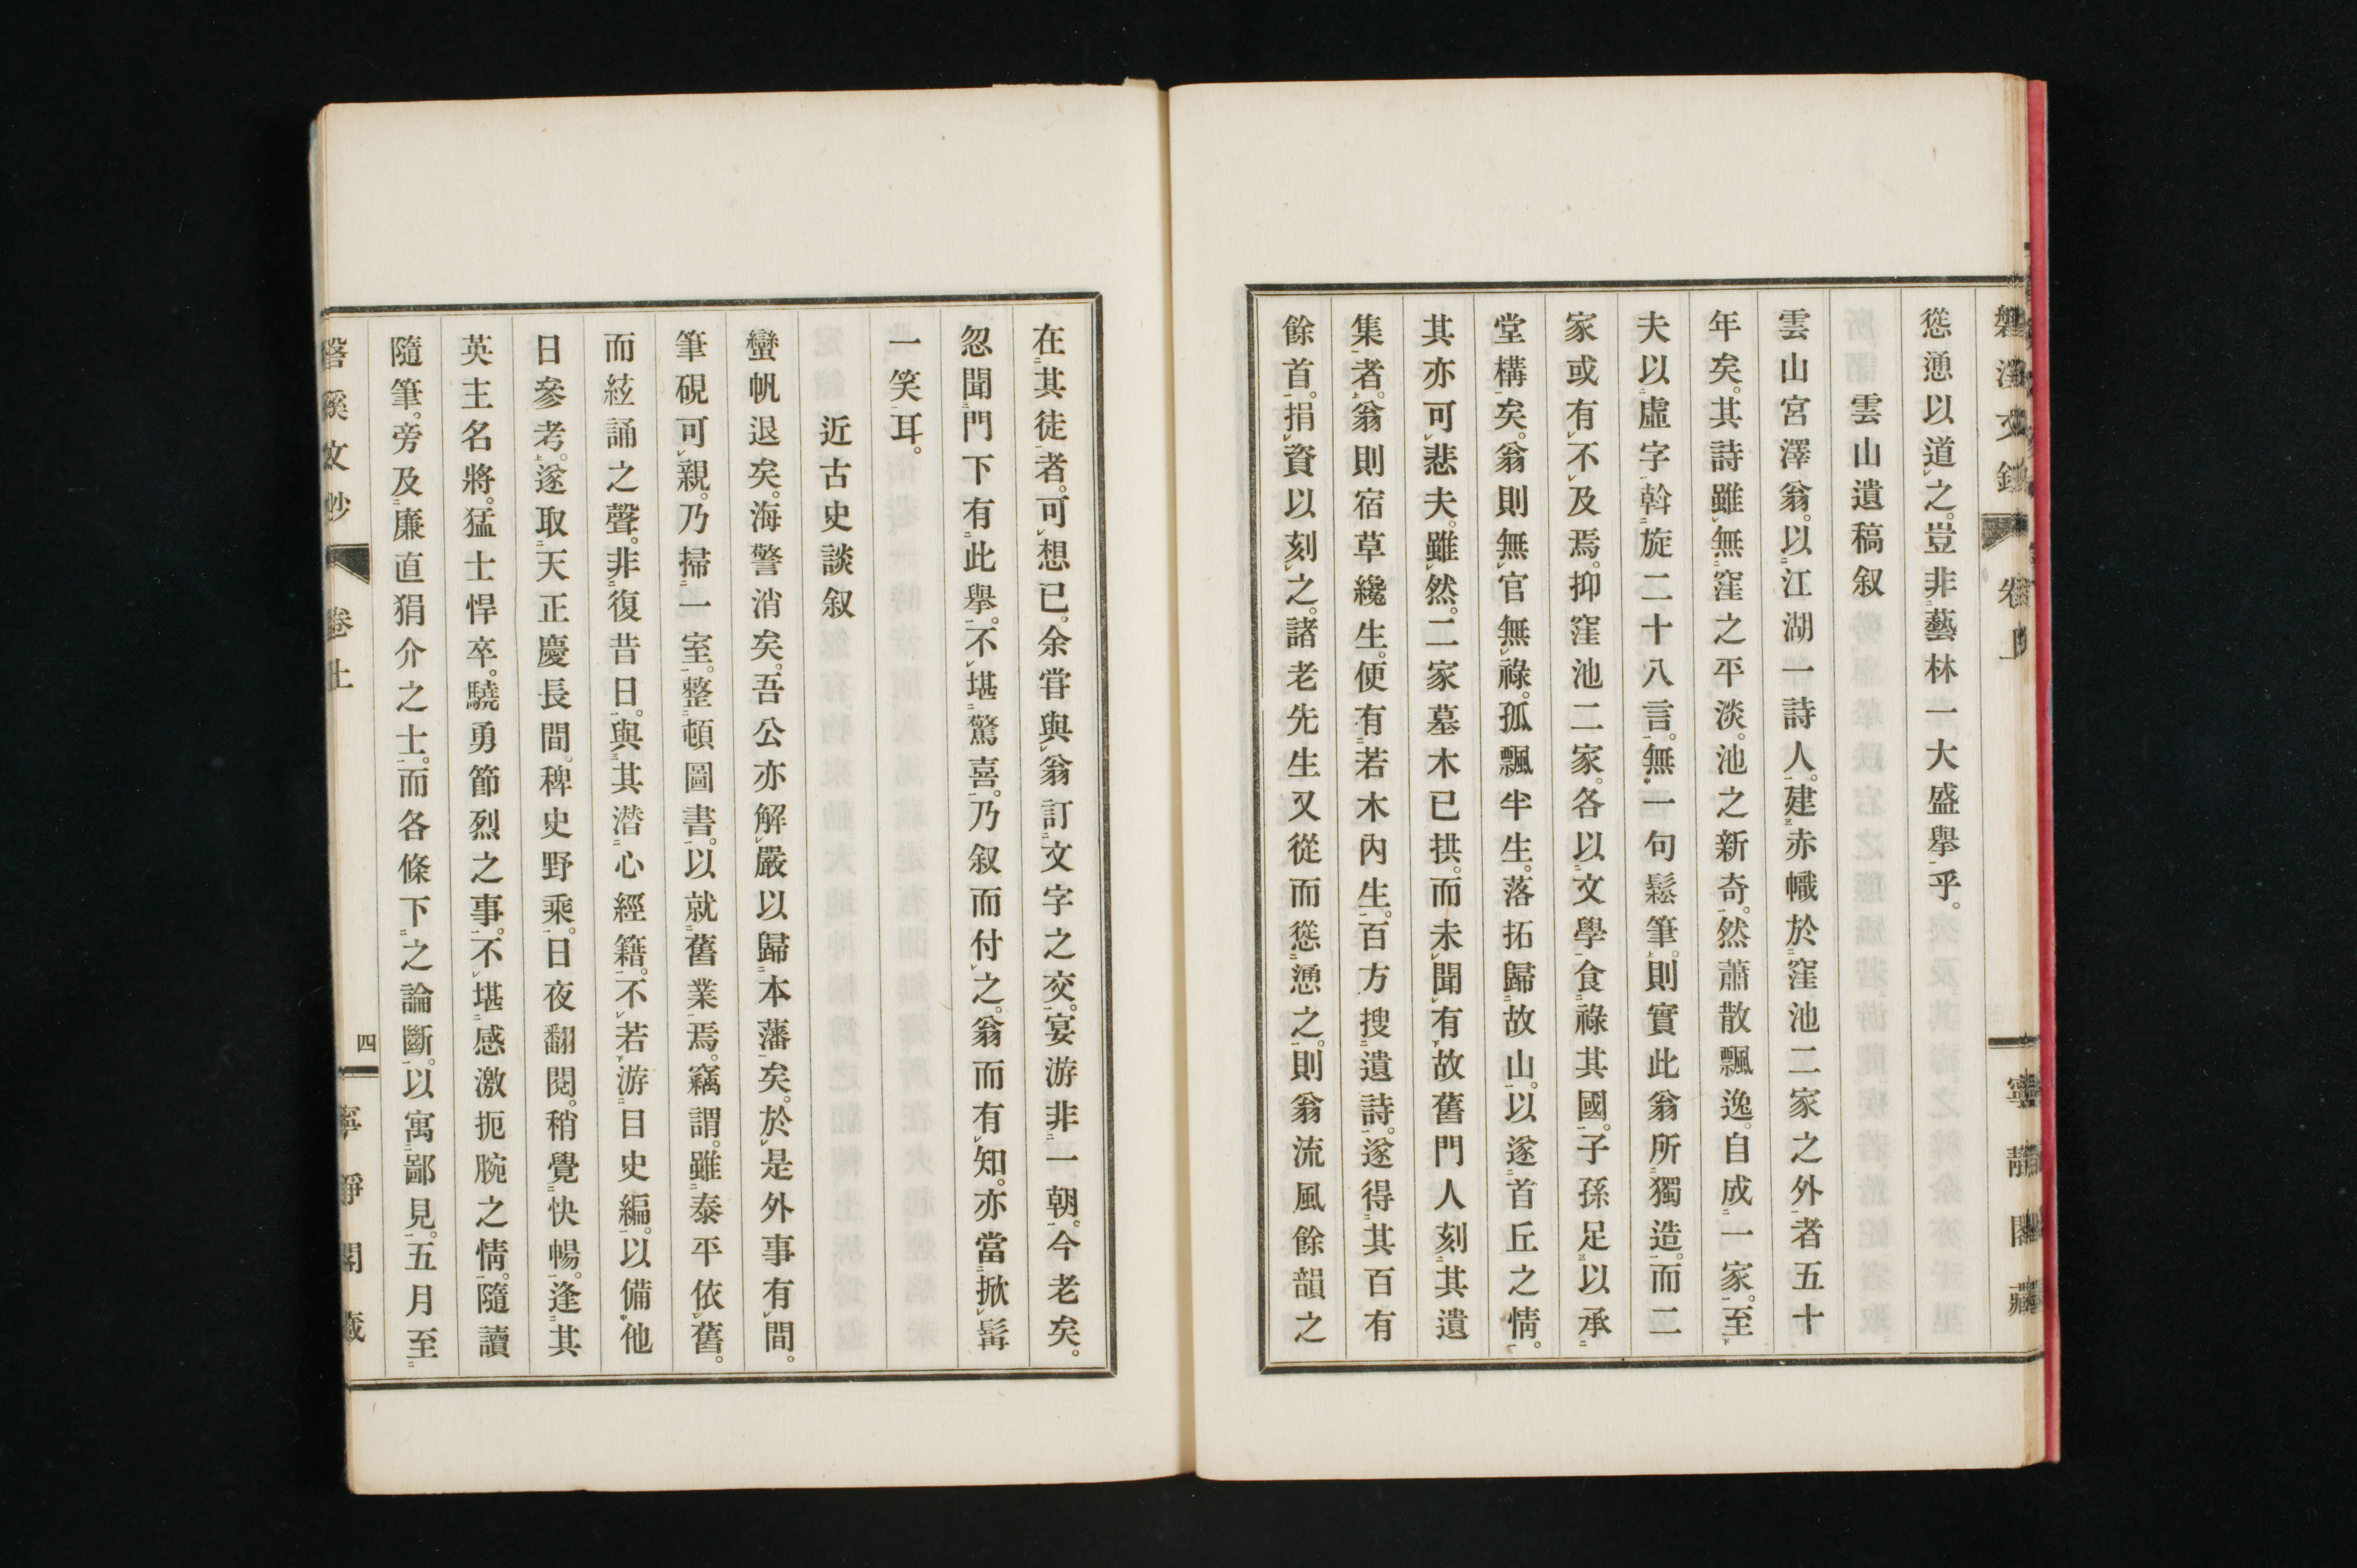 慫慂以道之。豈非藝林一大盛擧乎。
雲山遺稿叙
雲山宮澤翁。以江湖一詩人。建赤幟於窪池二家之外者五十
年矣。其詩雖無窪之平淡。池之新奇。然蕭散飄逸。自成一家。至
夫以虛字斡旋二十八言。無一句鬆筆。則實此翁所獨造。而二
家或有不及焉。抑窪池二家。各以文學食祿其國。子孫足以承
堂構矣。翁則無官無祿。孤飄半生。落拓歸故山。以遂首丘之情。
其亦可悲夫。雖然。二家墓木已拱。而未聞有故舊門人刻其遺
集者。翁則宿草纔生。便有若木內生。百方搜遺詩。遂得其百有
餘首。捐資以刻之。諸老先生又從而慫慂之。則翁流風餘韻之
在其徒者。可想已。余甞與翁訂文字之交。宴游非一朝。今老矣。
忽聞門下有此擧。不堪驚喜。乃叙而付之。翁而有知。亦當掀髯
一笑耳。
近古史談叙
蠻帆退矣。海警消矣。吾公亦解嚴以歸本藩矣。於是外事有間。
筆硯可親。乃掃一室。整頓圖書。以就舊業焉。竊謂。雖泰平依舊。
而絃誦之聲。非復昔日。與其潛心經籍。不若游目史編。以備他
日參考。遂取天正慶長間。稗史野乘。日夜翻閱。稍覺快暢。逢其
英主名將。猛士悍卒。驍勇節烈之事。不堪感激扼腕之情。隨讀
隨筆。旁及廉直狷介之士。而各條下之論斷。以寓鄙見。五月至
磐溪文鈔 卷上 四 寧靜閣藏